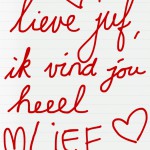 lieve juf,
ik vind jou
heeel
LIEF